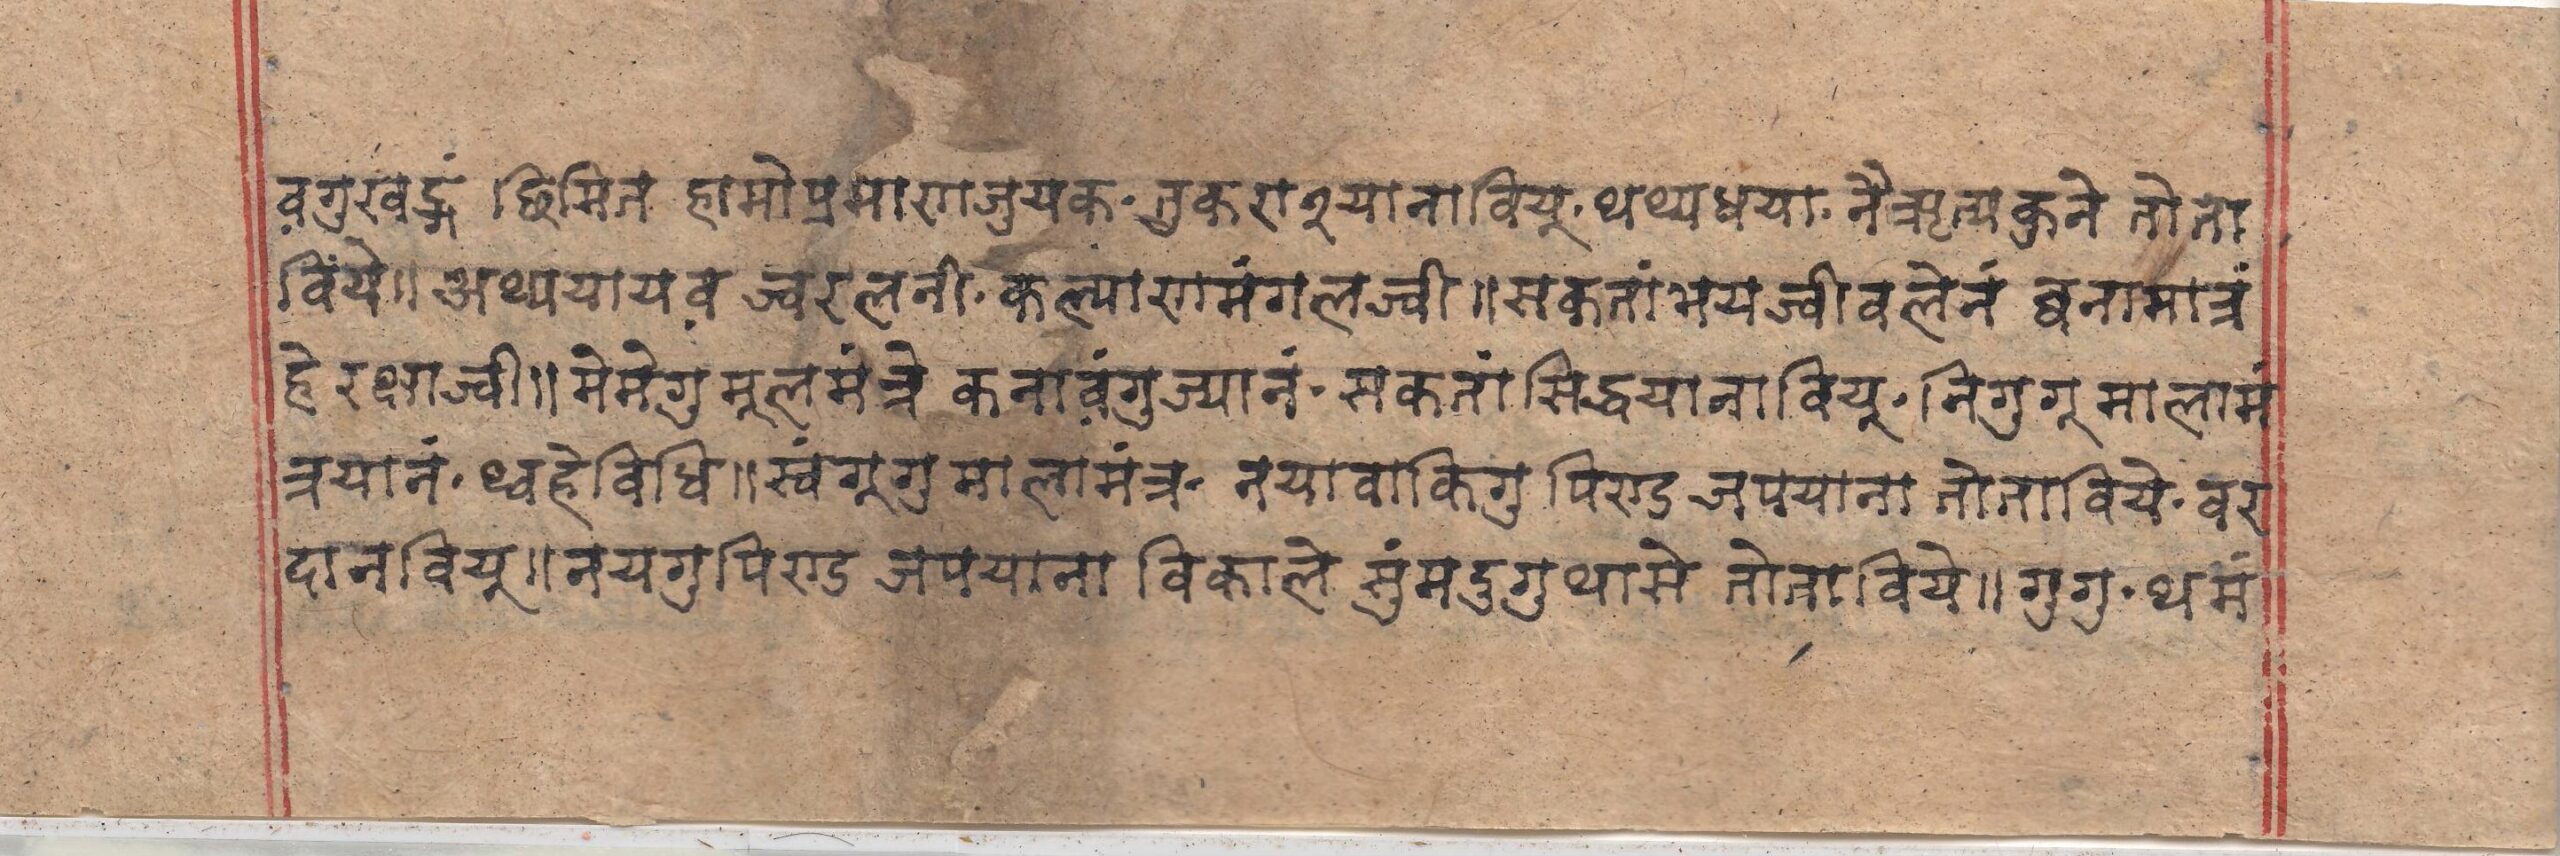 व़गुखड्गं छिमित हामोप्रमाणजुयक· तुकरा२यानावियू· थथ्यधया· नैऋत्यकुने तोता
वियें॥ अथ्ययायव़ ज्वरलनी· कल्याणमंगलज्वी॥ सकतांभयज्वीवलेनं ध्वनामात्रं
हे रक्षाज्वी॥ मेमेगु मूलमंत्रे कनाव़ंगुज्यानं· सकतां सिद्धयानावियू· निगुगू मालामं
त्रयानं· थ्वहेविधि॥ स्वंगूगु मालामंत्र· नयावाकिगु पिण्ड जपयाना तोताविये· वर
दानवियू॥ नयगुपिण्ड जपयाना विकाले सुंमदुगुथासे तोताविये॥ गुगु· थमं